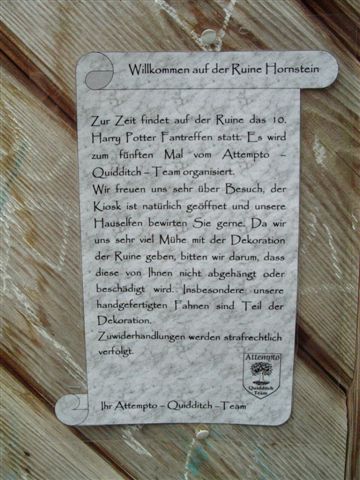 Willkommen auf der Ruine Hornstein
Zur Zeit findet auf der Ruine das 10.
Harry Potter Fantreffen statt. Es wird
zum fünften Mal vom Attempto –
Quidditch – Team organisiert.
Wir freuen uns sehr über Besuch, der
Kiosk ist natürlich geöffnet und unsere
Hauselfen bewirten Sie gerne. Da wir
uns sehr viel Mühe mit der Dekoration
der Ruine geben, bitten wir darum, dass
diese von Ihnen nicht abgehängt oder
beschädigt wird. Insbesondere unsere
handgefertigten Fahnen sind Teil der
Dekoration.
Zuwiderhandlungen werden strafrechtlich
verfolgt.
Attempto
Quidditch
Team
Ihr Attempto – Quidditch – Team